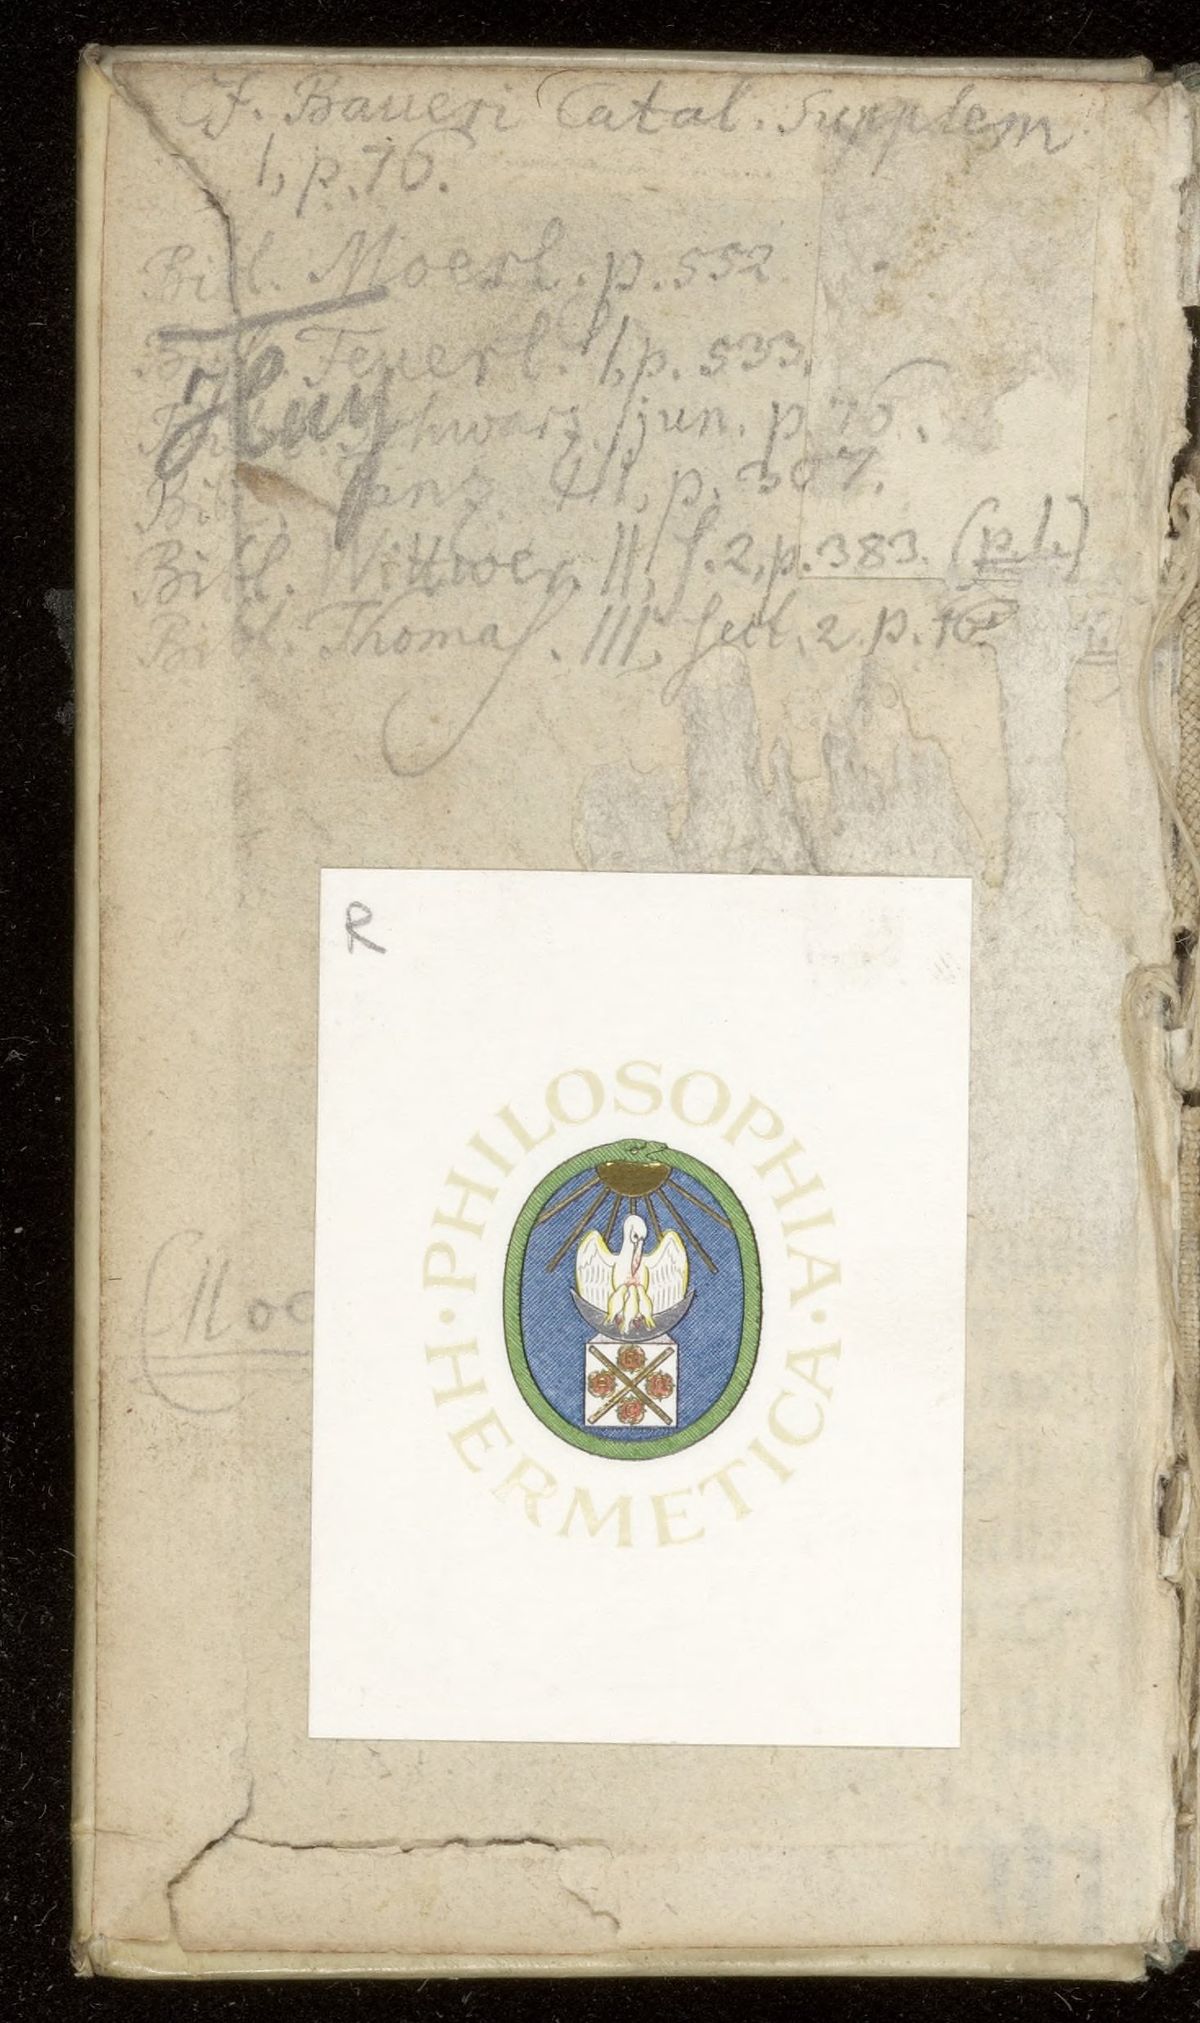 Cf. Baueri Catal. Supplem
I, p. 76.
Bibl. Moerl. p. 552.
Bibl. Feuerl. I, p. 533.
Schwarz. jun. p. 76.
Bibl. p. 307.
Bibl. Wittwer. II, S. 2, p. 383. (p. l.)
Bibl. Thomas. III, Sect. 2. p. 10
R
· PHILOSOPHIA ·
HERMETICA